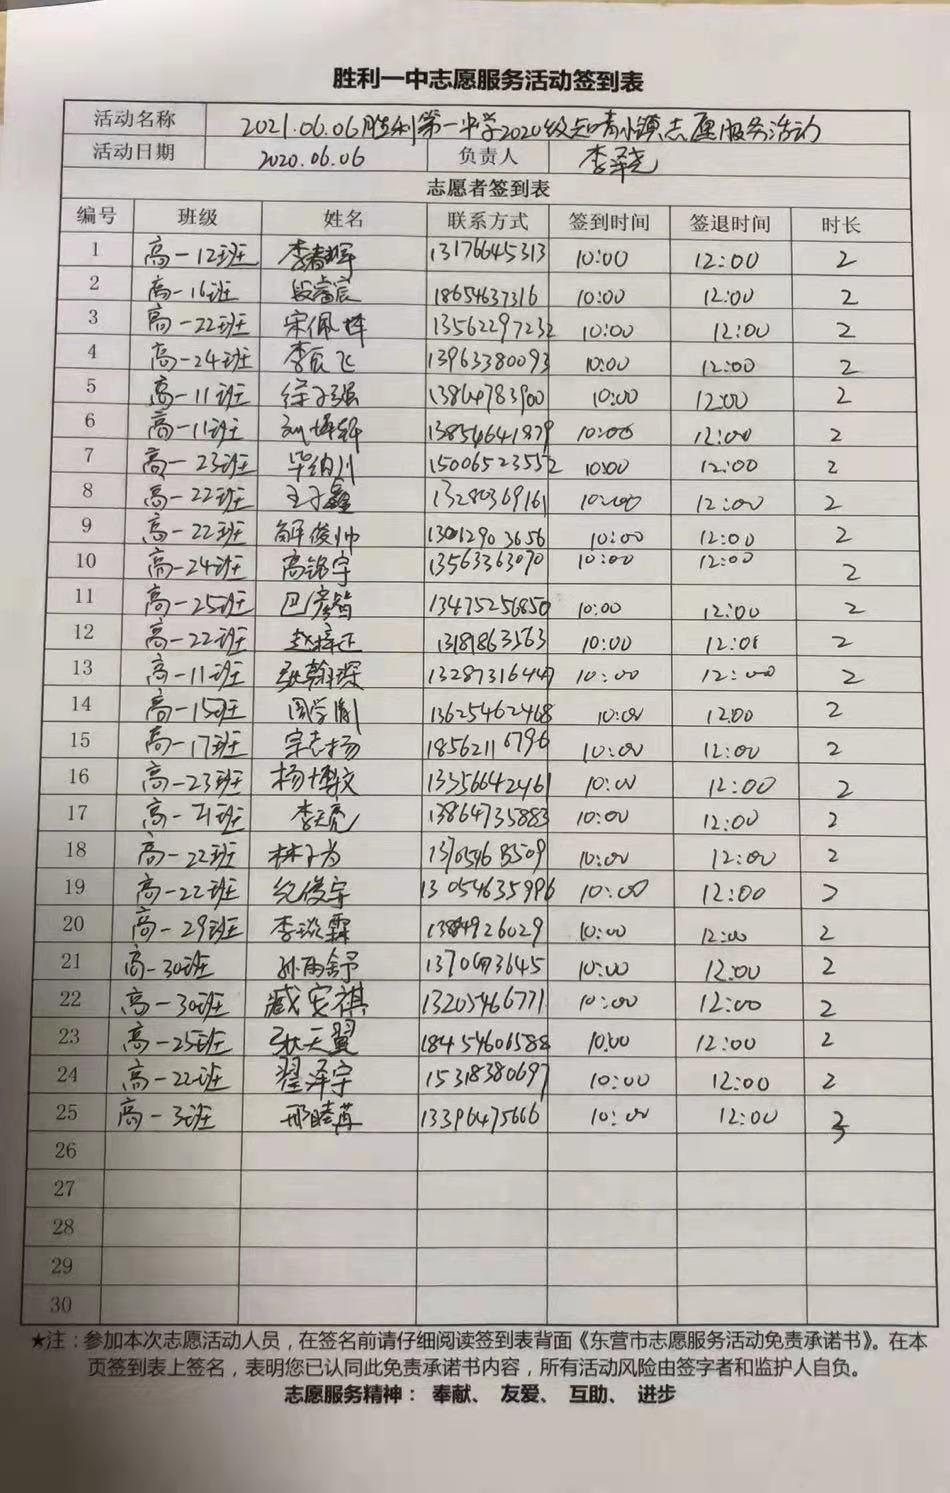 胜利一中志愿服务活动签到表
活动名称 2021.06.06胜利第一中学2020级知晴小镇志愿服务活动
活动日期 2020.06.06 负责人 李泽尧
志愿者签到表
编号 班级 姓名 联系方式 签到时间 签退时间 时长
1 高一12班 李春晖 13176645313 10:00 12:00 2
2 高一16班 段睿宸 18654637316 10:00 12:00 2
3 高一22班 宋佩烨 13562297232 10:00 12:00 2
4 高一24班 李辰飞 13963380093 10:00 12:00 2
5 高一11班 徐子强 13864783900 10:00 12:00 2
6 高一11班 刘博轩 13854641879 10:00 12:00 2
7 高一23班 毕纳川 15006523552 10:00 12:00 2
8 高一22班 王子鑫 13280369161 10:00 12:00 2
9 高一22班 解俊帅 13012903656 10:00 12:00 2
10 高一24班 高铭宇 13563363070 10:00 12:00 2
11 高一25班 巴彦哲 13475256850 10:00 12:00 2
12 高一22班 赵梓正 13181863563 10:00 12:00 2
13 高一11班 张翰琛 13287316447 10:00 12:00 2
14 高一15班 周学胤 13625462468 10:00 12:00 2
15 高一17班 宗志杨 18562116796 10:00 12:00 2
16 高一23班 杨博文 13356642461 10:00 12:00 2
17 高一21班 李天亮 13864735883 10:00 12:00 2
18 高一22班 林子为 10:00 12:00 2
19 高一22班 纪俊宇 13054635996 10:00 12:00 2
20 高一29班 李琰霖 10:00 12:00 2
21 高一30班 孙雨舒 10:00 12:00 2
22 高一30班 臧安祺 13205466771 10:00 12:00 2
23 高一25班 张天翼 18454606588 10:00 12:00 2
24 高一22班 翟泽宇 15318380697 10:00 12:00 2
25 高一3班 邢睦苒 13396475666 10:00 12:00
26
27
28
29
30
★注：参加本次志愿活动人员，在签名前请仔细阅读签到表背面《东营市志愿服务活动免责承诺书》。在本
页签到表上签名，表明您已认同此免责承诺书内容，所有活动风险由签字者和监护人自负。
志愿服务精神： 奉献、 友爱、 互助、 进步